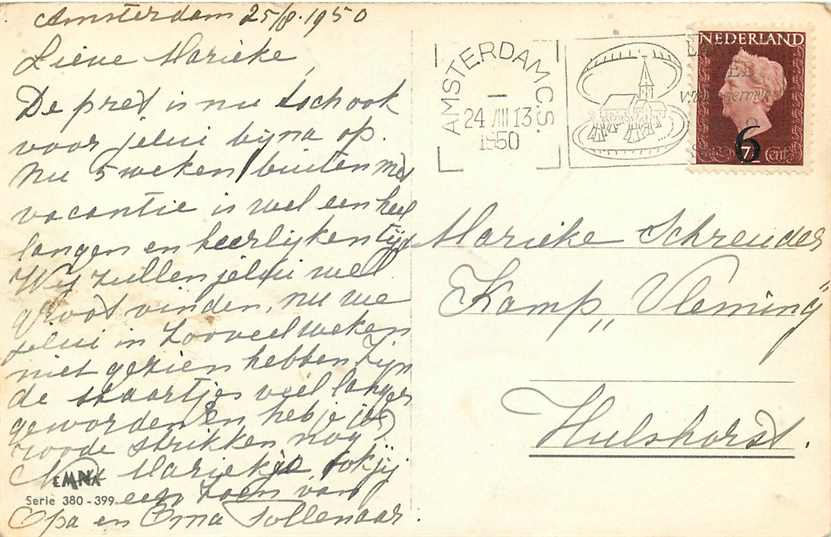 Amsterdam 25/8. 1950
Lieve Marieke,
De pret is nu toch ook
voor jelui byna op.
Nu 5 weken buiten met
vacantie is wel een heel
langen en heerlijken tijd
Wij zullen jelui wel
groot vinden, nu we
jelui in zooveel weken
niet gezien hebben. Zijn
de staartjes veel langer
geworden en heb je je
roode strikken nog?
Marieke ook jij
een zoen van
Opa en Oma Tollenaar.
EMNA
Serie 380-399
AMSTERDAM C.S.
24 VIII 13
1950
NEDERLAND
6
7½ cent
Marieke Schreuder
Kamp „Vleming"
Hulshorst.